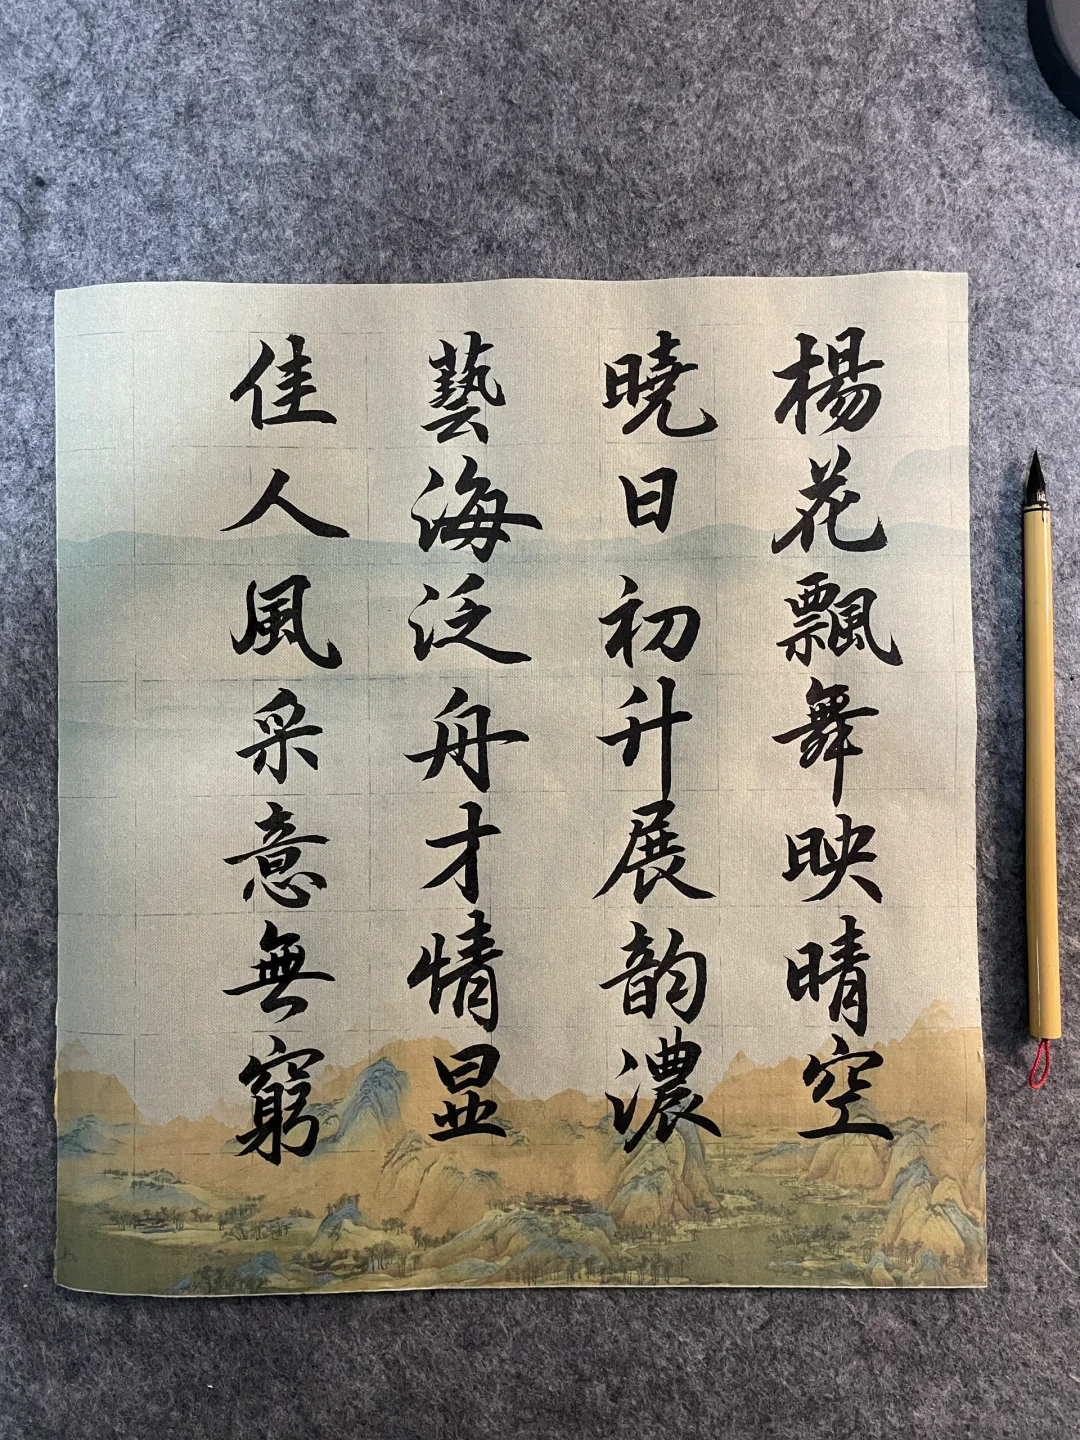 楊花飄舞映晴空
曉日初升展韵濃
藝海泛舟才情显
佳人風采意無窮